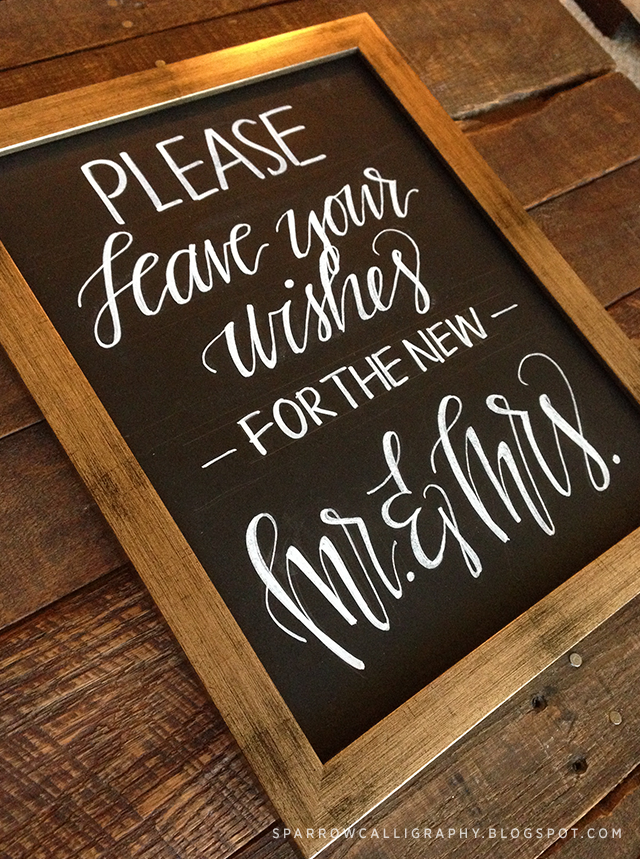 PLEASE
leave your
wishes
— FOR THE NEW —
Mr. & Mrs.
SPARROWCALLIGRAPHY.BLOGSPOT.COM